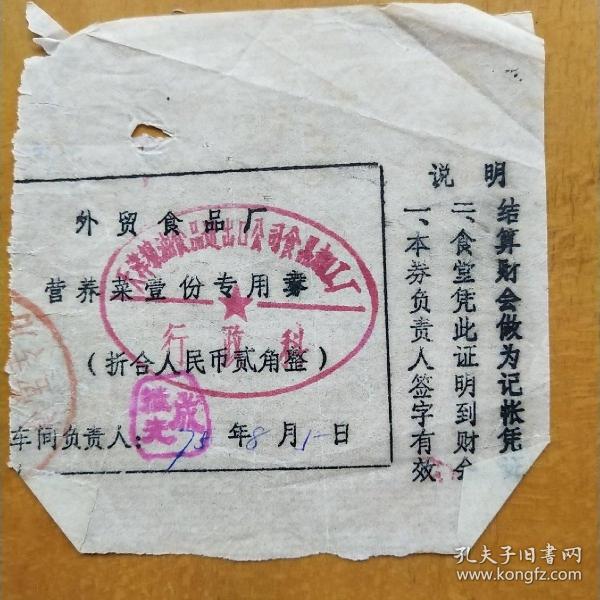 外贸食品厂
营养菜壹份专用券
（折合人民币贰角整）
车间负责人：75年8月1日
食品进出口公司食品加工厂
行政科
说明
一、本券负责人签字有效
二、食堂凭此证明到财会
结算财会做为记帐凭
孔夫子旧书网
www.kongfz.com